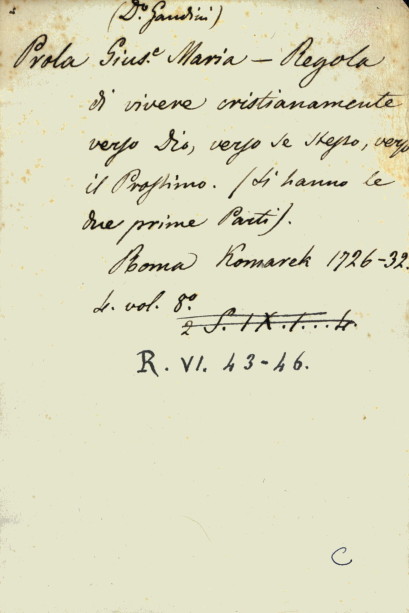 (Do. Gandini)
Prola Gius.e Maria – Regola
di vivere cristianamente
verso Dio, verso se stesso, verso
il Prossimo. (Si hanno le
due prime Parti).
Roma Komarek 1726-32.
4. vol. 8.o
2 S. IX. 1...4.
R. VI. 43-46.
C